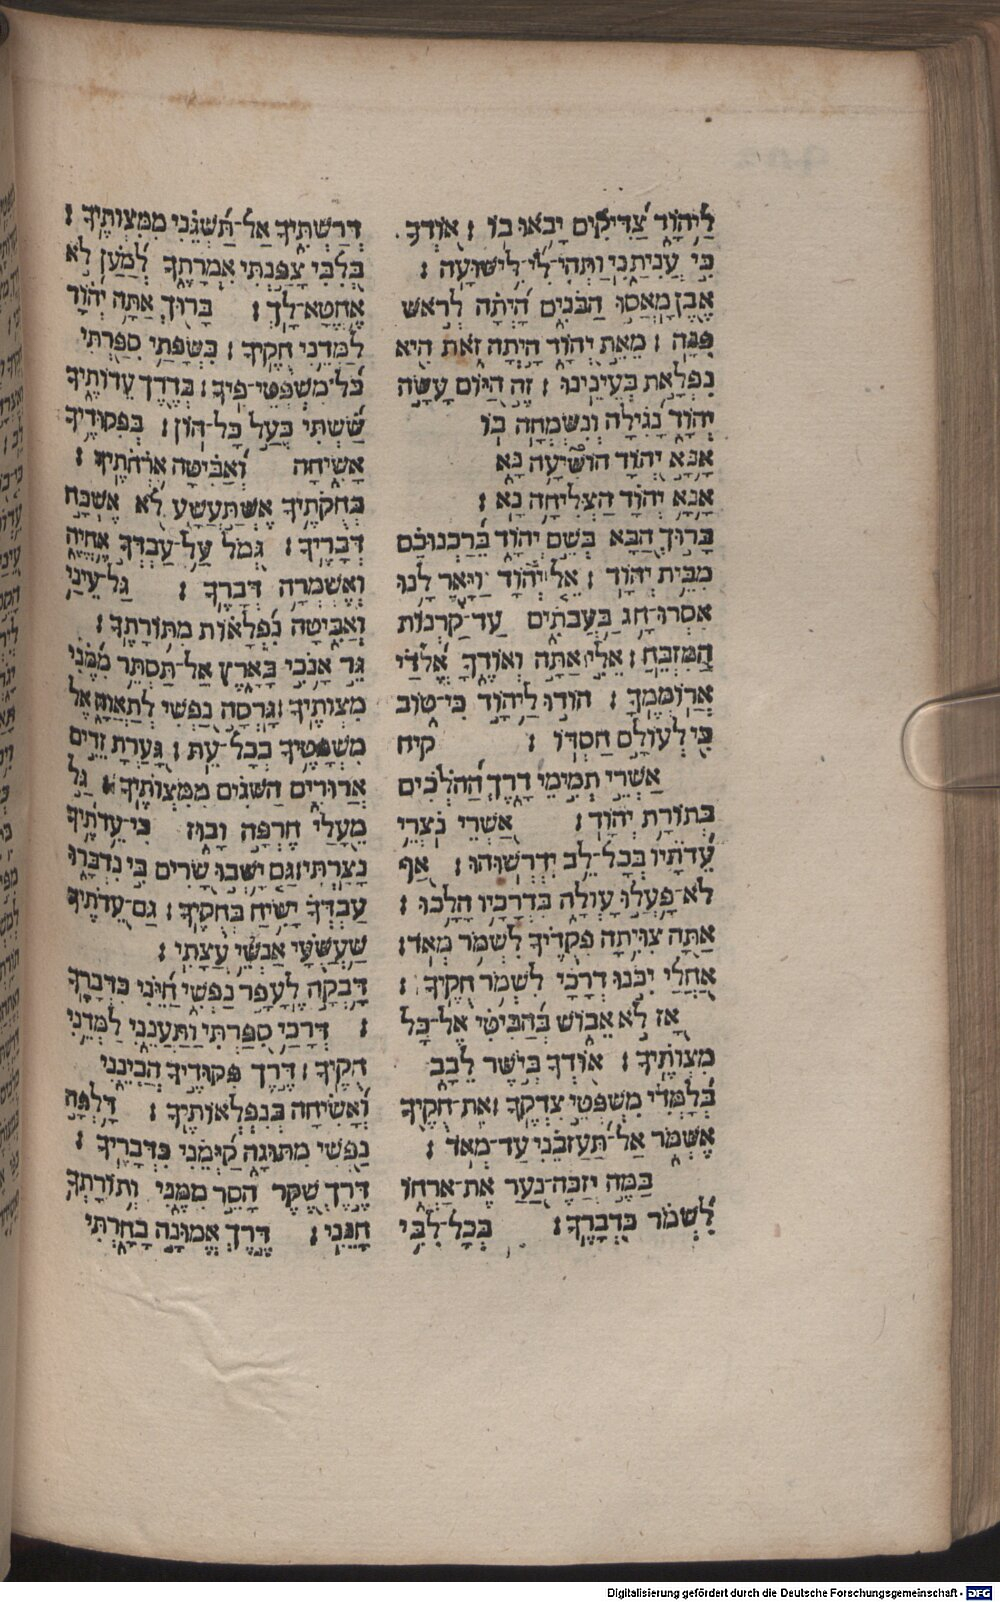 לַיהוָֹד צַדִּיקִים יָבֹאוּ בוֹ ׃ אוֹדְךָ
כִּי עֲנִיתָנִי וַתְּהִי־לִי לִישׁוּעָה ׃
אֶבֶן מָאֲסוּ הַבֹּנִים הָיְתָה לְרֹאשׁ
פִּנָּה ׃ מֵאֵת יְהוָֹד הָיְתָה זֹאת הִיא
נִפְלָאת בְּעֵינֵינוּ ׃ זֶה הַיּוֹם עָשָׂה
יְהוָֹד נָגִילָה וְנִשְׂמְחָה בוֹ
אָנָּא יְהוָֹד הוֹשִׁיעָה נָּא
אָנָּא יְהוָֹד הַצְלִיחָה נָא ׃
בָּרוּךְ הַבָּא בְּשֵׁם יְהוָֹד בֵּרַכְנוּכֶם
מִבֵּית יְהוָֹד ׃ אֵל יְהוָֹד וַיָּאֶר לָנוּ
אִסְרוּ־חַג בַּעֲבֹתִים עַד־קַרְנוֹת
הַמִּזְבֵּחַ ׃ אֵלִי אַתָּה וְאוֹדֶךָּ אֱלֹדַי
אֲרוֹמְמֶךָּ ׃ הוֹדוּ לַיהוָֹד כִּי־טוֹב
כִּי לְעוֹלָם חַסְדּוֹ ׃ קיח
אַשְׁרֵי תְמִימֵי דָרֶךְ הַהֹלְכִים
בְּתוֹרַת יְהוָֹד ׃ אַשְׁרֵי נֹצְרֵי
עֵדֹתָיו בְּכָל־לֵב יִדְרְשׁוּהוּ ׃ אַף
לֹא־פָעֲלוּ עַוְלָה בִּדְרָכָיו הָלָכוּ ׃
אַתָּה צִוִּיתָה פִקֻּדֶיךָ לִשְׁמֹר מְאֹד ׃
אַחֲלַי יִכֹּנוּ דְרָכָי לִשְׁמֹר חֻקֶּיךָ ׃
אָז לֹא אֵבוֹשׁ בְּהַבִּיטִי אֶל־כָּל
מִצְוֹתֶיךָ ׃ אוֹדְךָ בְּיֹשֶׁר לֵבָב
בְּלָמְדִי מִשְׁפְּטֵי צִדְקֶךָ ׃ אֶת־חֻקֶּיךָ
אֶשְׁמֹר אַל־תַּעַזְבֵנִי עַד־מְאֹד ׃
בַּמֶּה יְזַכֶּה־נַּעַר אֶת־אָרְחוֹ
לִשְׁמֹר כִּדְבָרֶךָ ׃ בְּכָל־לִבִּי
דְרַשְׁתִּיךָ אַל־תַּשְׁגֵּנִי מִמִּצְוֹתֶיךָ ׃
בְּלִבִּי צָפַנְתִּי אִמְרָתֶךָ לְמַעַן לֹא
אֶחֱטָא־לָךְ ׃ בָּרוּךְ אַתָּה יְהוָֹד
לַמְּדֵנִי חֻקֶּיךָ ׃ בִּשְׂפָתַי סִפַּרְתִּי
כֹּל מִשְׁפְּטֵי־פִיךָ ׃ בְּדֶרֶךְ עֵדוֹתֶיךָ
שַׂשְׂתִּי כְּעַל כָּל־הוֹן ׃ בְּפִקּוּדֶיךָ
אָשִׂיחָה וְאַבִּיטָה אֹרְחֹתֶיךָ ׃
בְּחֻקֹּתֶיךָ אֶשְׁתַּעֲשָׁע לֹא אֶשְׁכַּח
דְּבָרֶיךָ ׃ גְּמֹל עַל־עַבְדְּךָ אֶחְיֶה
וְאֶשְׁמְרָה דְבָרֶךָ ׃ גַּל־עֵינַי
וְאַבִּיטָה נִפְלָאוֹת מִתּוֹרָתֶךָ ׃
גֵּר אָנֹכִי בָאָרֶץ אַל־תַּסְתֵּר מִמֶּנִּי
מִצְוֹתֶיךָ ׃ גָּרְסָה נַפְשִׁי לְתַאֲוָה אֶל
מִשְׁפָּטֶיךָ בְכָל־עֵת ׃ גָּעַרְתָּ זֵדִים
אֲרוּרִים הַשֹּׁגִים מִמִּצְוֹתֶיךָ ׃ גַּל
מֵעָלַי חֶרְפָּה וָבוּז כִּי־עֵדֹתֶיךָ
נָצָרְתִּי ׃ גַּם יָשְׁבוּ שָׂרִים בִּי נִדְבָּרוּ
עַבְדְּךָ יָשִׂיחַ בְּחֻקֶּיךָ ׃ גַּם־עֵדֹתֶיךָ
שַׁעֲשֻׁעָי אַנְשֵׁי עֲצָתִי ׃
דָּבְקָה לֶעָפָר נַפְשִׁי חַיֵּנִי כִּדְבָרֶךָ
׃ דְּרָכַי סִפַּרְתִּי וַתַּעֲנֵנִי לַמְּדֵנִי
חֻקֶּיךָ ׃ דֶּרֶךְ פִּקּוּדֶיךָ הֲבִינֵנִי
וְאָשִׂיחָה בְּנִפְלְאוֹתֶיךָ ׃ דָּלְפָה
נַפְשִׁי מִתּוּגָה קַיְּמֵנִי כִּדְבָרֶיךָ ׃
דֶּרֶךְ שֶׁקֶר הָסֵר מִמֶּנִּי וְתוֹרָתְךָ
חָנֵּנִי ׃ דֶּרֶךְ אֱמוּנָה בָחָרְתִּי
Digitalisierung gefördert durch die Deutsche Forschungsgemeinschaft - DFG